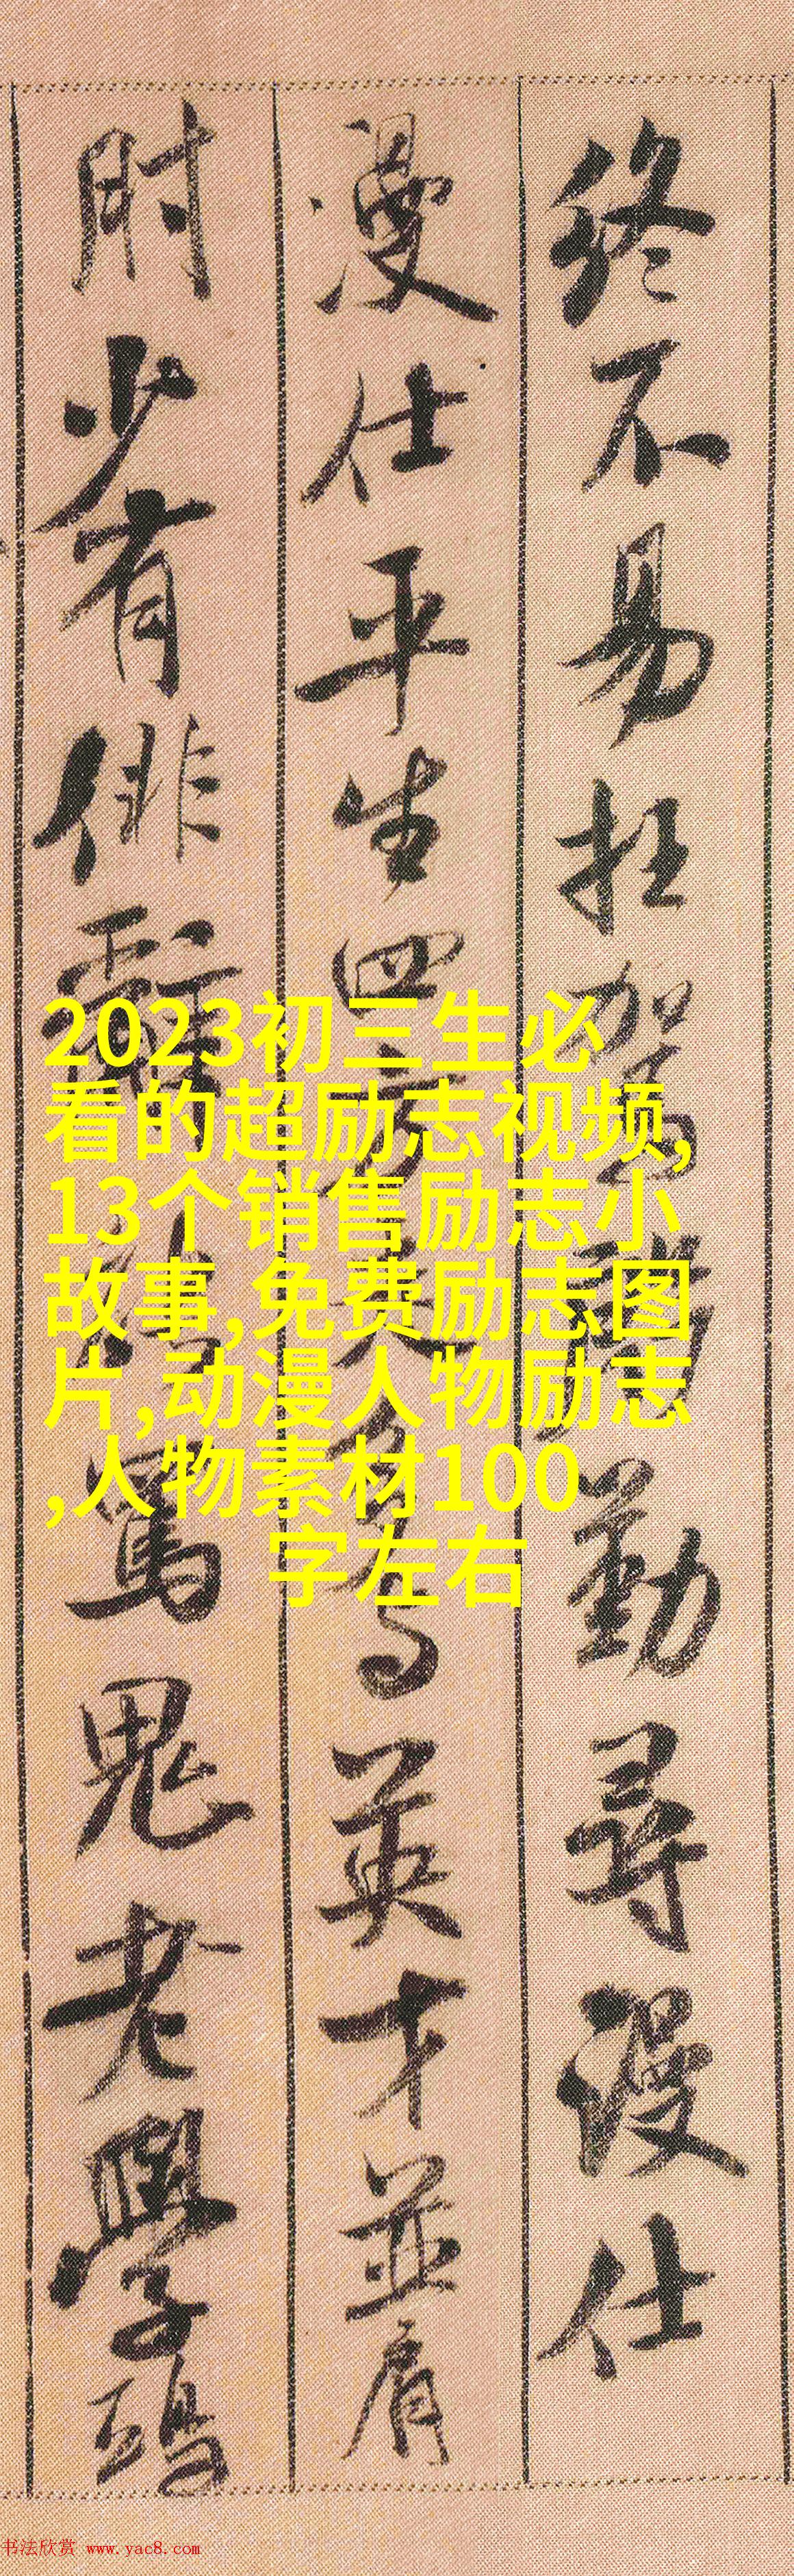 終不易枉駕勤尋漫仕
漫仕平生四方英才並肩
肘少有俳辭罵鬼老學鴟
2023初三生必
看的超励志视频,
13个销售励志小
故事,免费励志图
片,动漫人物励志
,人物素材100
字左右
书法欣赏 www.yac8.com